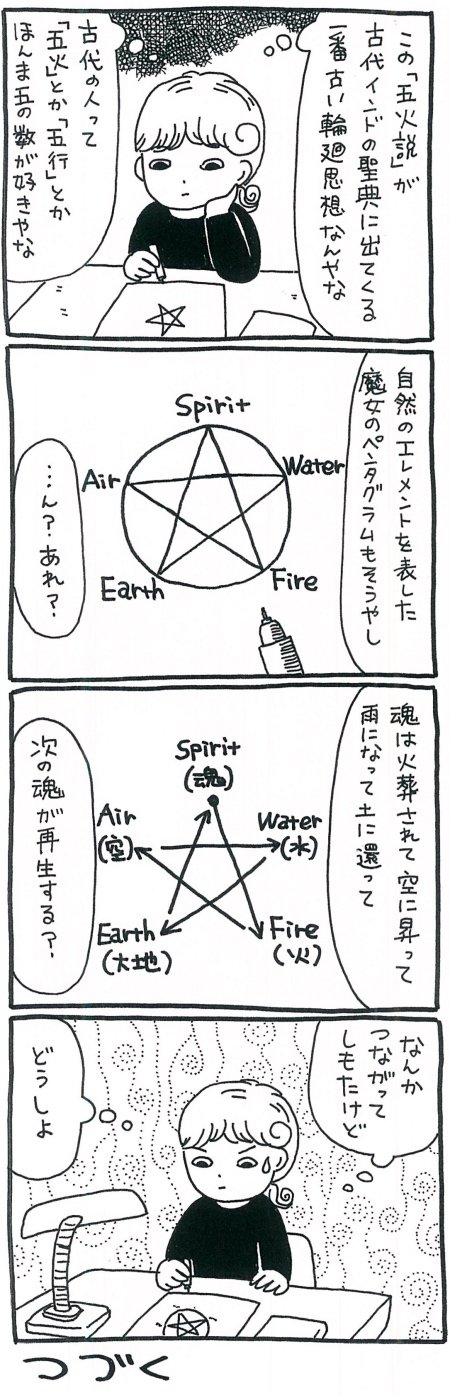 この「五火説」が
古代インドの聖典に出てくる
一番古い輪廻思想なんやな
古代の人って
「五火」とか「五行」とか
ほんま五の数が好きやな
自然のエレメントを表した
魔女のペンタグラムもそうやし
Spirit
Air
Water
Earth
Fire
…ん？あれ？
魂は火葬されて空に昇って
雨になって土に還って
Spirit
(魂)
Air
(空)
Water
(水)
Earth
(大地)
Fire
(火)
次の魂が再生する？
なんか
つながって
しもたけど
どうしよ
つづく